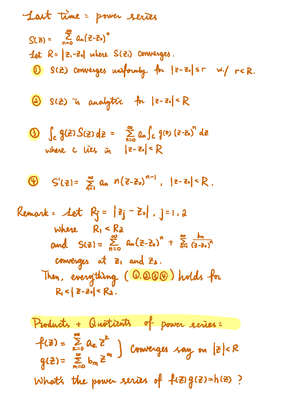 Last time = power series
S(z) = ∑_{n=0}^{∞} a_n(z-z_0)^n
Let R = |z_1-z_0| where S(z_1) converges.
① S(z) converges uniformly for |z-z_0|≤r w/ r<R.
② S(z) is analytic for |z-z_0|<R
③ ∫_C g(z)S(z)dz = ∑_{n=0}^{∞} a_n ∫_C g(z)(z-z_0)^n dz
where C lies in |z-z_0|<R
④ S'(z) = ∑_{n=1}^{∞} a_n n(z-z_0)^{n-1}, |z-z_0|<R.
Remark = Let R_j = |z_j - z_0|, j=1,2
where R_1<R_2
and S(z) = ∑_{n=0}^{∞} a_n(z-z_0)^n + ∑_{n=1}^{∞} b_n/(z-z_0)^n
converges at z_1 and z_2.
Then, everything (①,②,③,④) holds for
R_1<|z-z_0|<R_2.
Products + Quotients of power series:
f(z) = ∑_{k=0}^{∞} a_k z^k
g(z) = ∑_{m=0}^{∞} b_m z^m } converges say on |z|<R
What's the power series of f(z)g(z)=h(z) ?